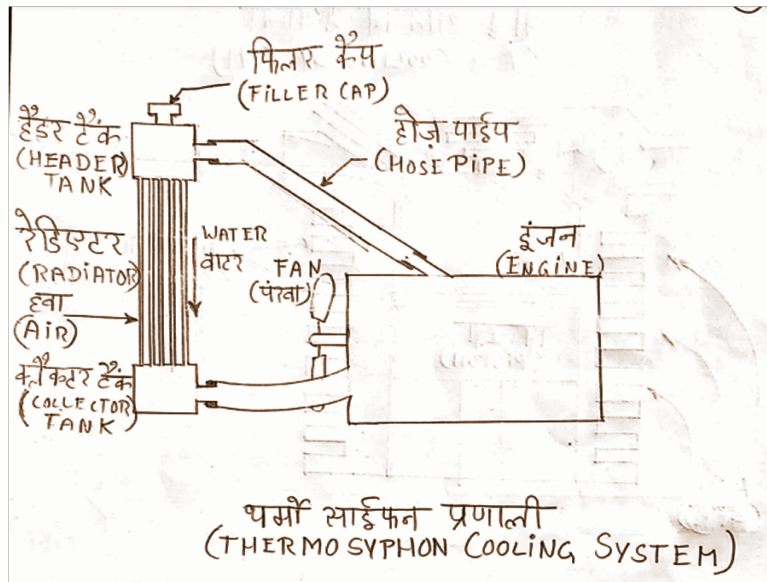 फिलर कैप
(FILLER CAP)
हैडर टैंक
(HEADER
TANK
होज़ पाईप
(HOSE PIPE)
रेडिएटर
(RADIATOR)
WATER
वाटर
इंजन
(ENGINE)
FAN
(पंखा)
हवा
(AIR)
क्लैक्टर टैंक
(COLLECTOR
TANK
थर्मो साईफन प्रणाली
(THERMOSYPHON COOLING SYSTEM)